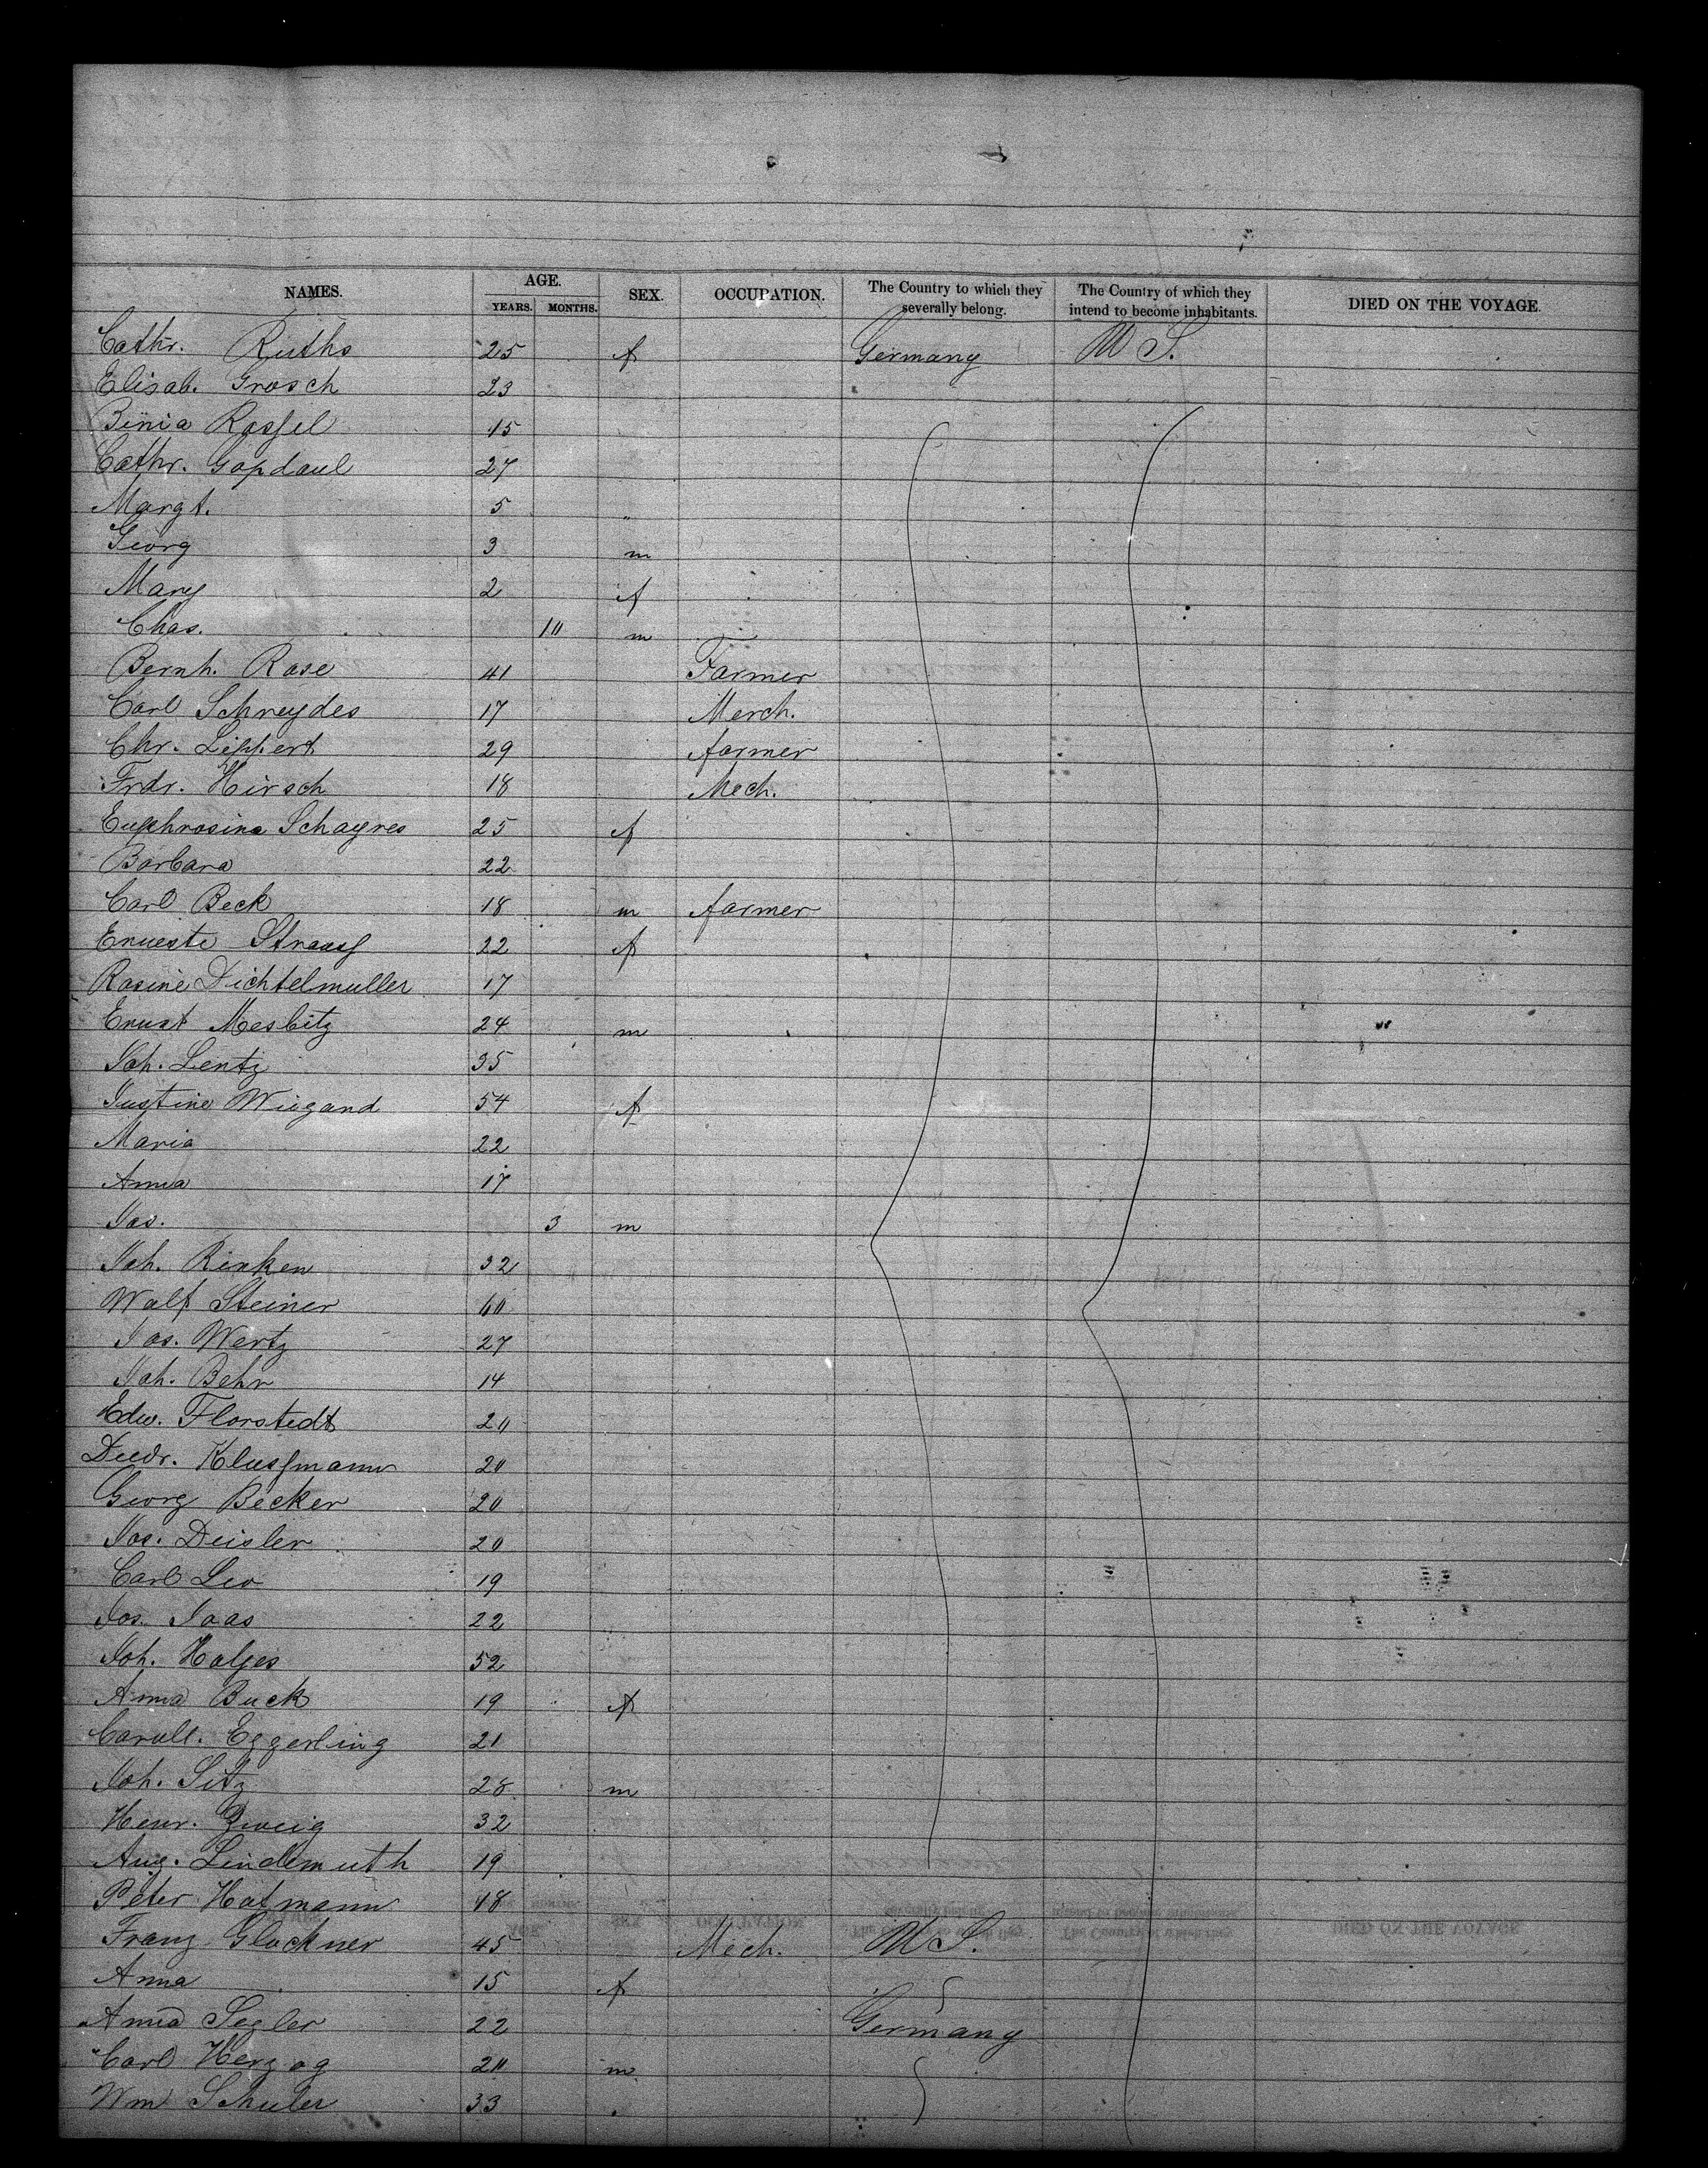 NAMES. AGE. YEARS. MONTHS. SEX. OCCUPATION. The Country to which they severally belong. The Country of which they intend to become inhabitants. DIED ON THE VOYAGE.
Cathr. Ruths 25 f Germany U S.
Elisab. Grosch 23
Binia Rossel 15
Cathr. Gopdaul 27
Margt. 5 "
Georg 3 m
Mary 2 f
Chas. 10 m
Bernh. Rose 41 Farmer
Carl Schreydes 17 Merch.
Chr. Lippert 29 farmer
Frdr. Hirsch 18 Mech.
Euphrosina Schayres 25 f
Barbara 22
Carl Beck 18 m farmer
Ernueste Strauss 22 f
Rosine Dichtelmuller 17
Ernst Mesbitz 24 m
Joh. Lentz 35
Justine Wiegand 54 f
Maria 22
Anna 17
Jos. 3 m
Joh. Rinken 32
Wolf Steiner 60
Jos. Wertz 27
Joh. Behr 14
Edw. Florstedt 20
Diedr. Klussmann 20
Georg Becker 20
Jos. Deisler 20
Carl Leo 19
Jos. Joas 22
Joh. Holjes 52
Anna Buck 19 f
Caroll. Eggerling 21
Joh. Sitz 28 m
Henr. Zweig 32
Aug. Lindemuth 19
Peter Hofmann 48
Franz Glockner 45 Mech. U S.
Anna 15 f
Anna Segler 22 Germany
Carl Herzog 20 m
Wm Schuler 33